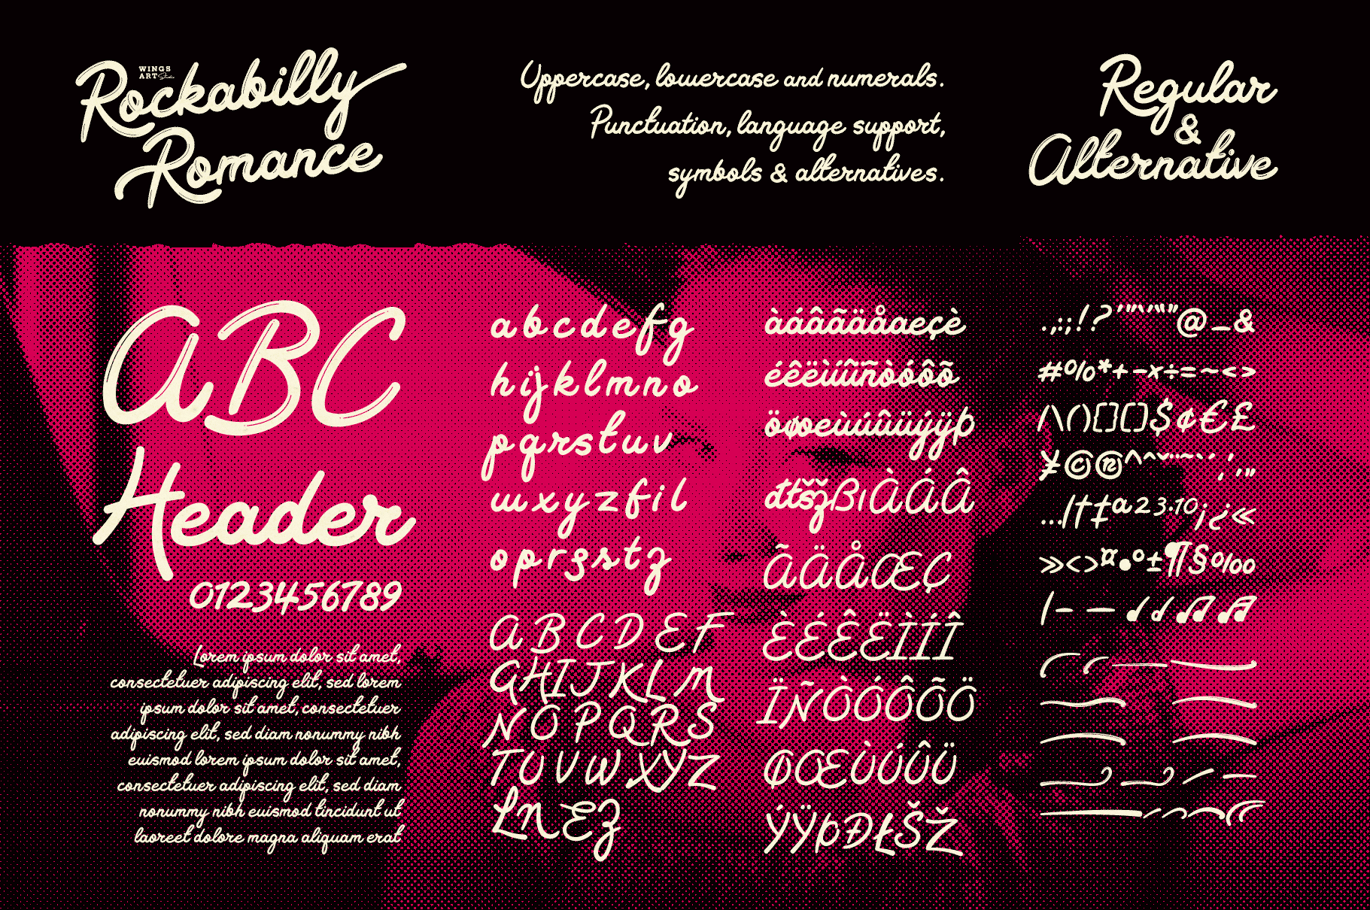 Rockabilly
WINGS
ART Studio
Romance
Uppercase, lowercase and numerals.
Punctuation, language support,
symbols & alternatives.
Regular
&
Alternative
ABC
Header
0123456789
Lorem ipsum dolor sit amet,
consectetuer adipiscing elit, sed lorem
ipsum dolor sit amet, consectetuer
adipiscing elit, sed diam nonummy nibh
euismod lorem ipsum dolor sit amet,
consectetuer adipiscing elit, sed diam
nonummy nibh euismod tincidunt ut
laoreet dolore magna aliquam erat
a b c d e f g
h i j k l m n o
p q r s t u v
w x y z f i l
o p r s s t z
A B C D E F
G H I J K L M
N O P Q R S
T U V W X Y Z
L N E Z
àáâãäåaeçè
éêëìíîïñòóôõ
öøœùúûüýÿþ
đłšžßıÀÁÂ
ÃÄÅŒÇ
ÈÉÊËÌÍÎ
ÏÑÒÓÔÕÖ
ØŒÙÚÛÜ
ÝŸÞĐŁŠŽ
.,:;!?'"‘’“”@_&
#%*+-×÷=~<>
/\(){}[]$¢€£
¥©®^ˆˇ¨˜`´¸‚„
…|†‡ª23·1º¡¿«
»‹›¤•°±¶§‰
|–—♩♪♫♬